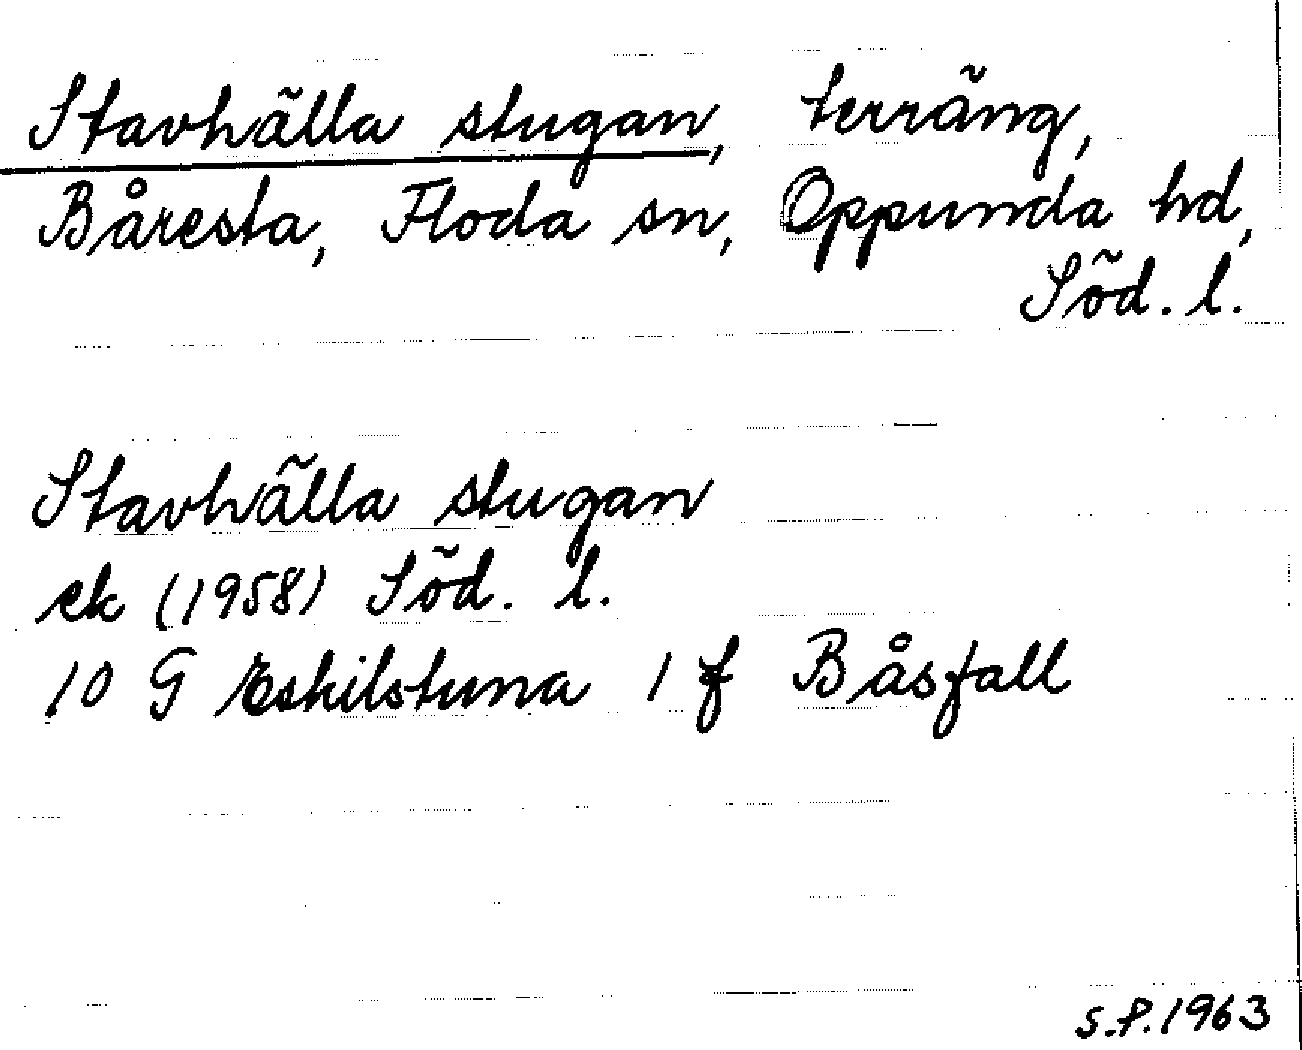 Stavhälla stugan, terräng,
Båresta, Floda sn, Oppunda hd,
Söd. l.
Stavhälla stugan
ek (1958) Söd. l.
10 G Eskilstuna 1 f Båsfall
S.P. 1963